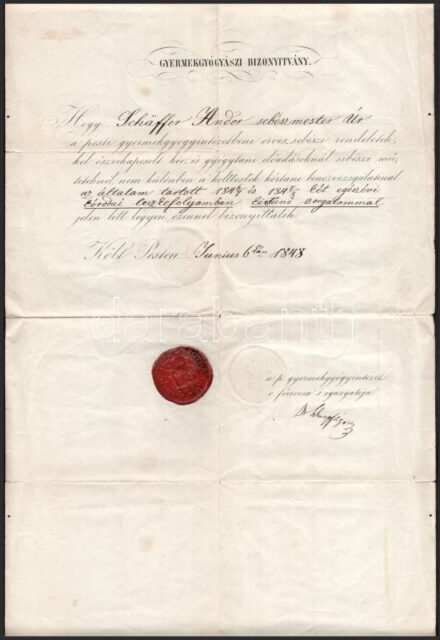 GYERMEKGYÓGYÁSZI BIZONYITVÁNY.
Hogy Schäffer Andor sebészmester Úr
a pesti gyermekgyógyintézetbeni orvos sebészi rendeletek,
kel öszvekapcsolt kór és gyógytani előadásoknál sebészi mű,
tételnél nem különben a holttestek kórtani boncvizsgálatánál
az általam tartott és két egészévi
óródai leczkefolyamban kitünö szorgalommal
jelen volt légyen ezennel bizonyittatik.
Költ Pesten Junius 6kán 1848
darabanth
a p. gyermekgyógyintézet
főorvosa s igazgatója
Dr